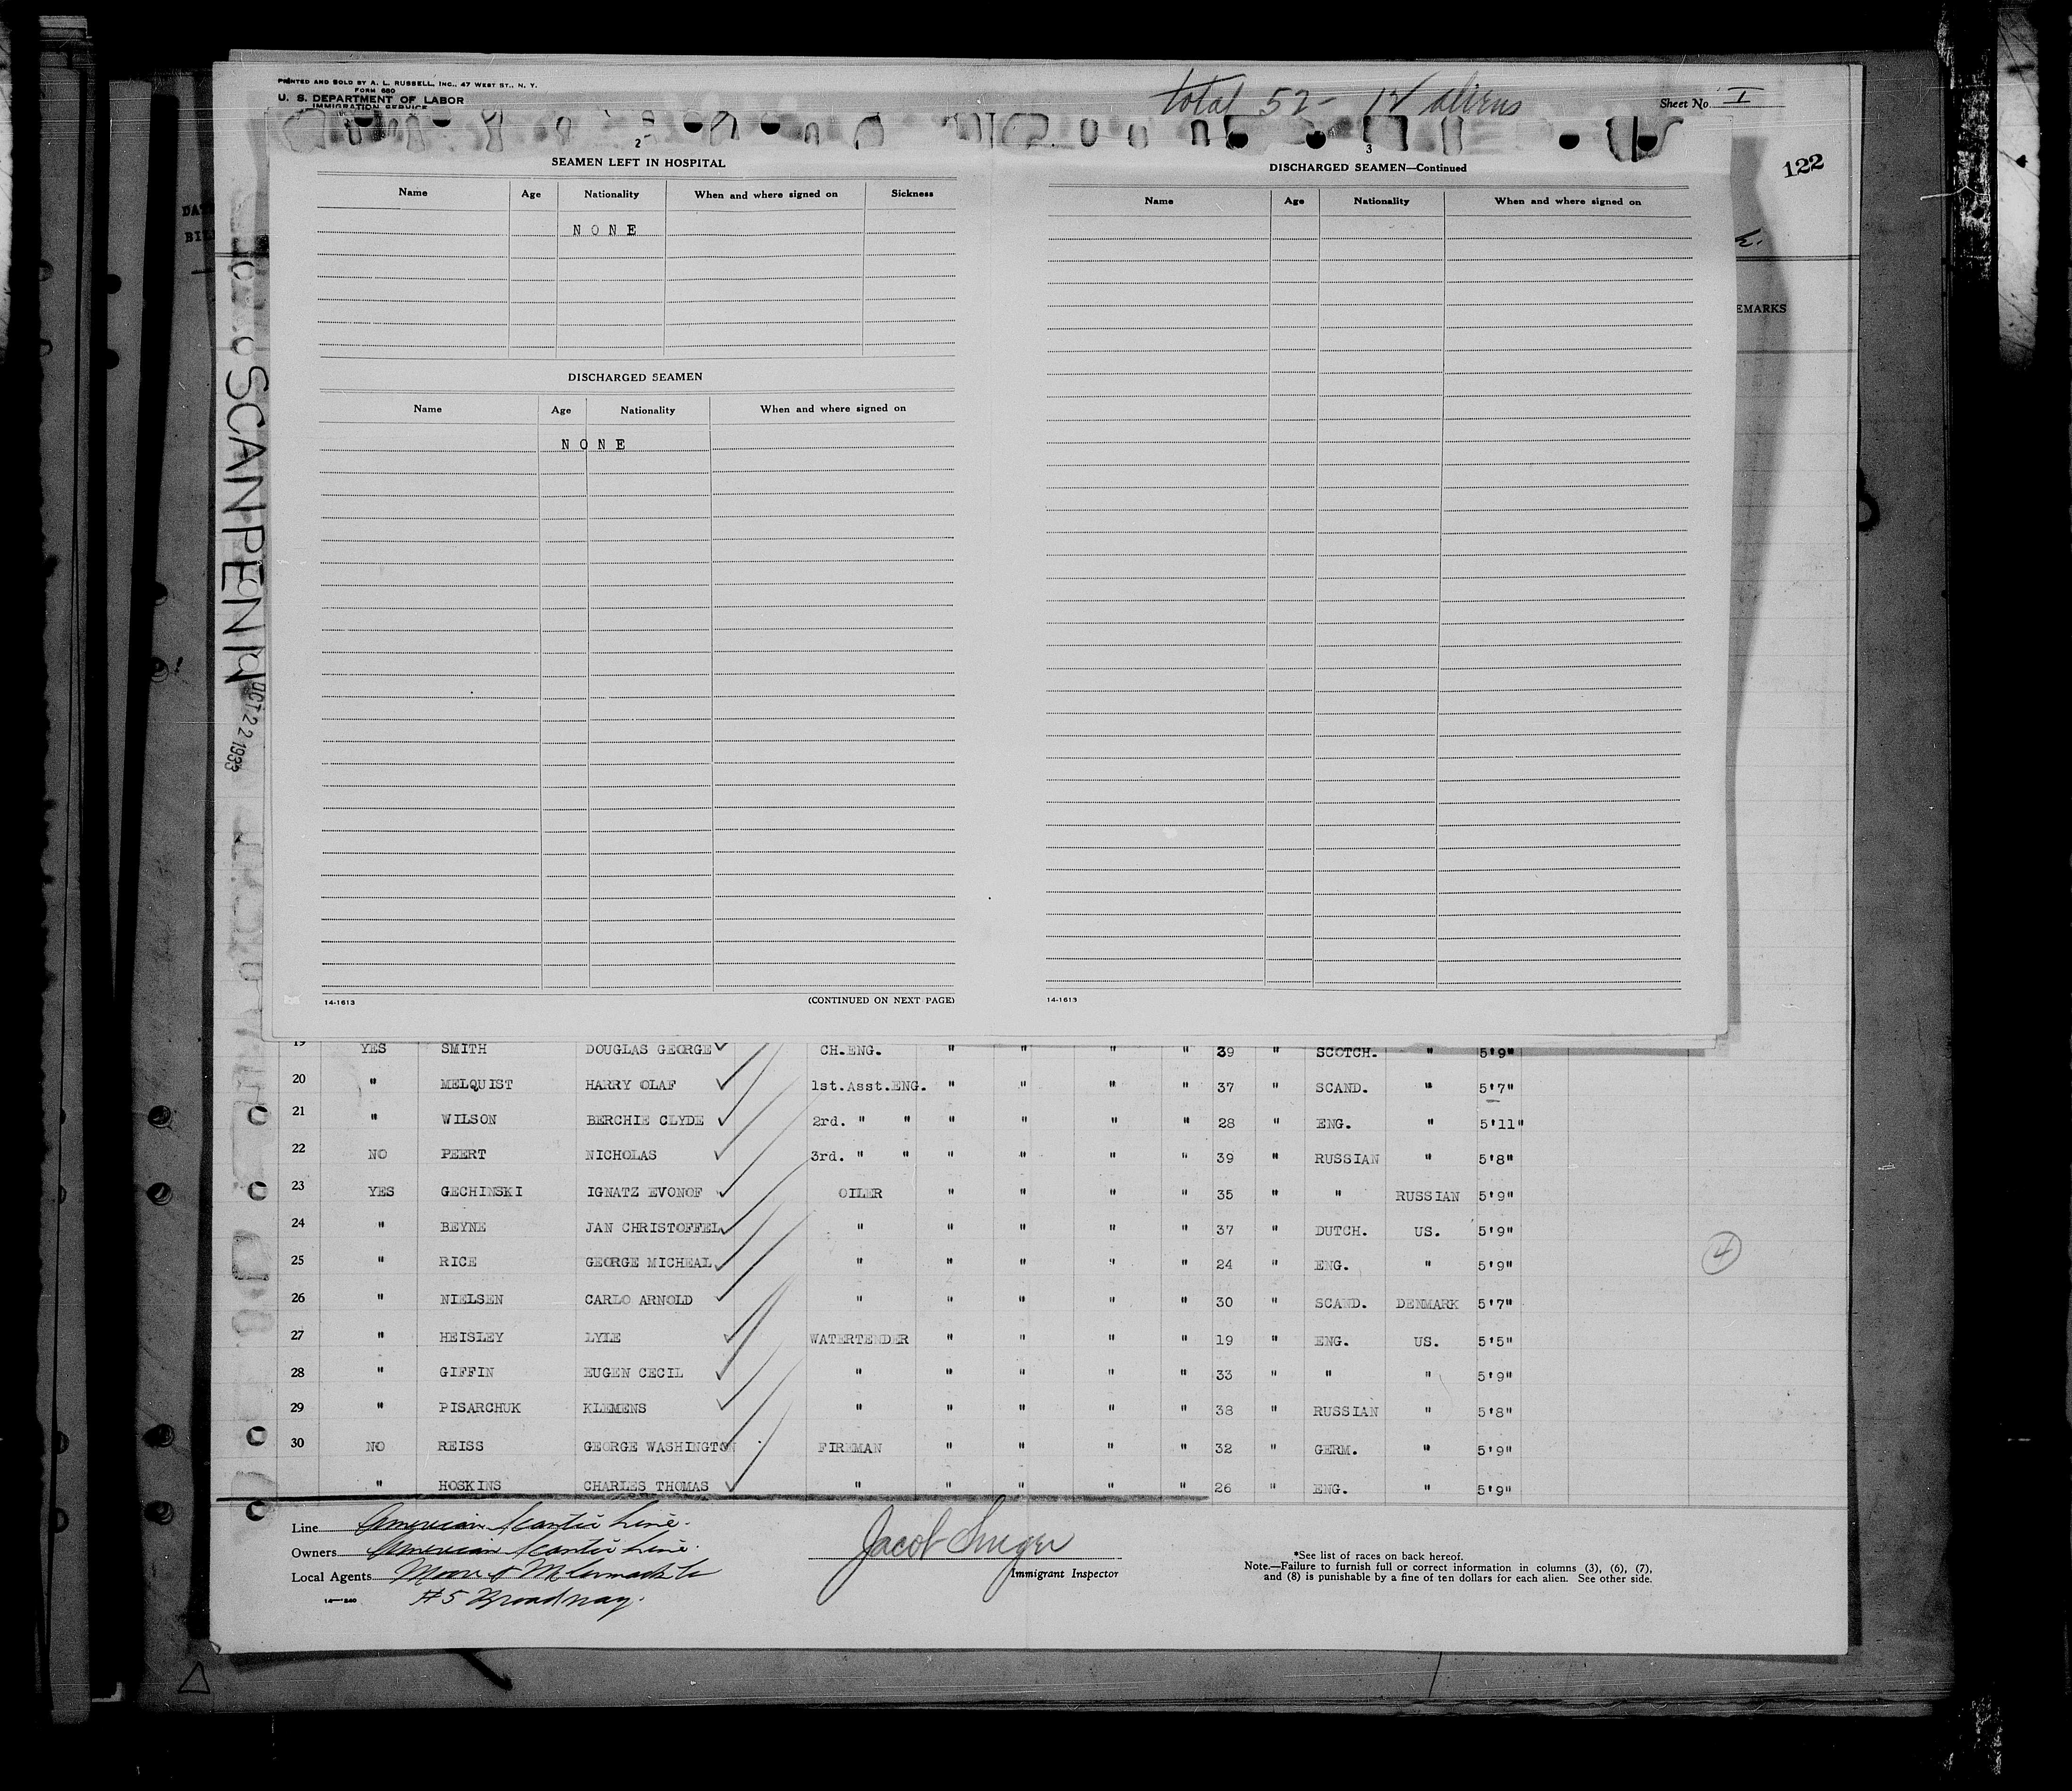 PRINTED AND SOLD BY A. L. RUSSELL, INC., 47 WEST ST., N. Y.
FORM 680
U. S. DEPARTMENT OF LABOR
IMMIGRATION SERVICE
total 52 - 12 aliens
Sheet No. I
122
2
SEAMEN LEFT IN HOSPITAL
Name Age Nationality When and where signed on Sickness
N O N E
DISCHARGED SEAMEN
Name Age Nationality When and where signed on
N O N E
14-1613 (CONTINUED ON NEXT PAGE)
3
DISCHARGED SEAMEN—Continued
Name Age Nationality When and where signed on
14-1613
EMARKS
SCANPENN
OCT 22 1933
19 YES SMITH DOUGLAS GEORGE CH.ENG. " " " " 39 " SCOTCH. " 5'9"
20 " MELQUIST HARRY OLAF 1st.Asst.ENG. " " " " 37 " SCAND. " 5'7"
21 " WILSON BERCHIE CLYDE 2rd. " " " " " " 28 " ENG. " 5'11"
22 NO PEERT NICHOLAS 3rd. " " " " " " 39 " RUSSIAN " 5'8"
23 YES GECHINSKI IGNATZ EVONOF OILER " " " " 35 " " RUSSIAN 5'9"
24 " BEYNE JAN CHRISTOFFEL " " " " " 37 " DUTCH. US. 5'9"
25 " RICE GEORGE MICHEAL " " " " " 24 " ENG. " 5'9"
26 " NIELSEN CARLO ARNOLD " " " " " 30 " SCAND. DENMARK 5'7"
27 " HEISLEY LYLE WATERTENDER " " " " 19 " ENG. US. 5'5"
28 " GIFFIN EUGEN CECIL " " " " " 33 " " " 5'9"
29 " PISARCHUK KLEMENS " " " " " 38 " RUSSIAN " 5'8"
30 NO REISS GEORGE WASHINGTON FIREMAN " " " " 32 " GERM. " 5'9"
" HOSKINS CHARLES THOMAS " " " " " 26 " ENG. " 5'9"
4
Line American Scantic Line.
Owners American Scantic Line.
Local Agents Moore & McCormack Co
#5 Broadway.
Jacob
Immigrant Inspector
*See list of races on back hereof.
Note.—Failure to furnish full or correct information in columns (3), (6), (7),
and (8) is punishable by a fine of ten dollars for each alien. See other side.